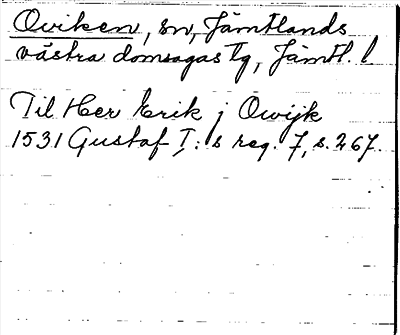 Oviken, sn, Jämtlands
västra domsagas tg, Jämtl. l
Til Her Erik j Owijk
1531 Gustaf I:s reg. 7, s. 267.